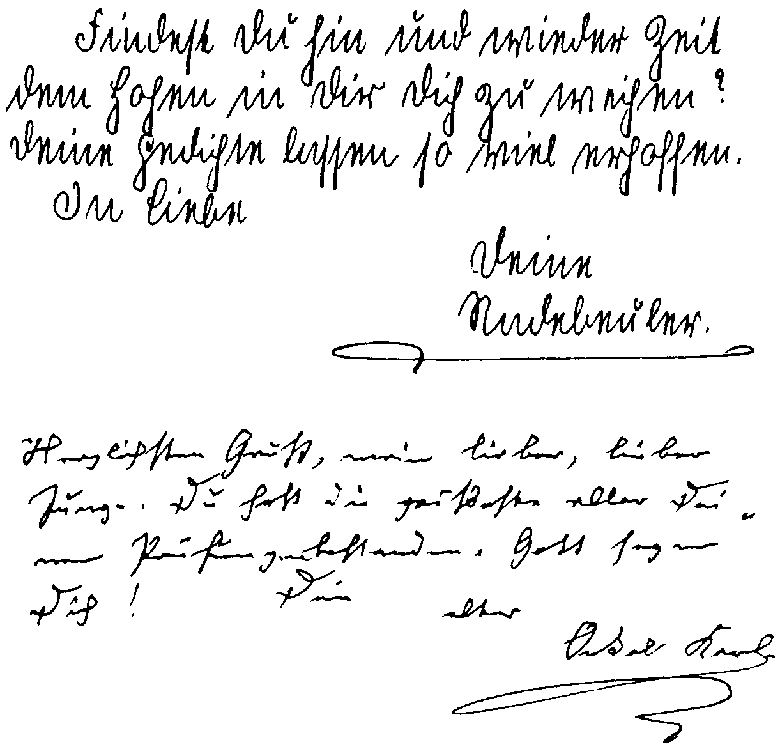 Findest Du hin und wieder Zeit
dem Hohen in Dir Dich zu weihen?
Deine Gedichte lassen so viel erhoffen.
In Liebe
Deine
Radebeuler.
Herzlichsten Gruß, mein lieber, lieber
Junge. Du hast die größeste aller Dei-
nen Prüfungen bestanden. Gott segne
Dich! Dein alter
Onkel Karl